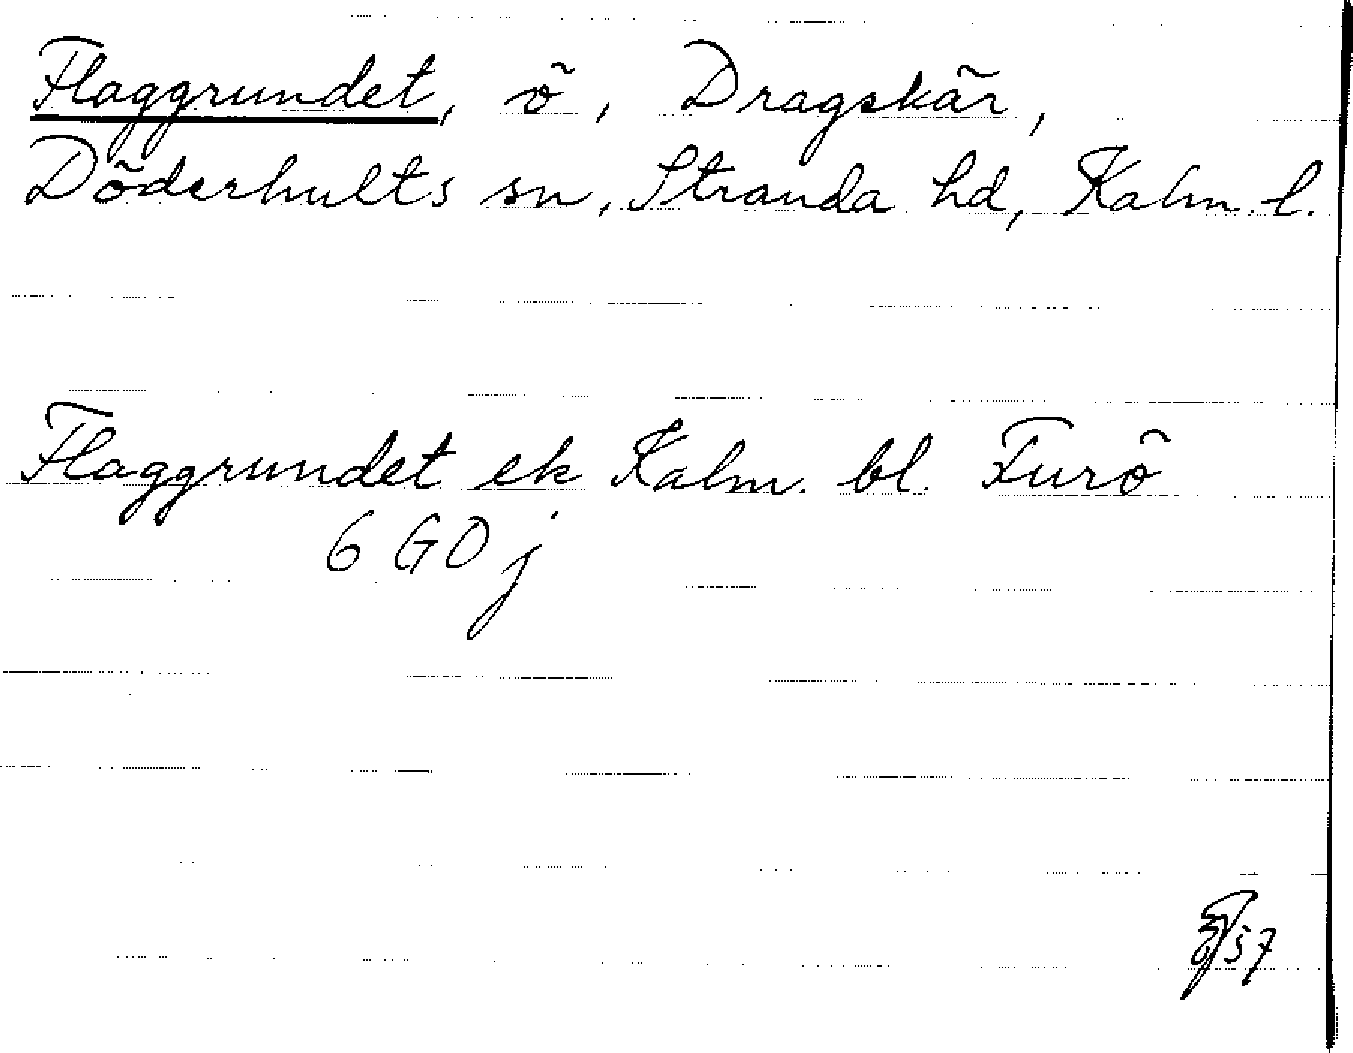 Flaggrundet, ö, Dragskär,
Döderhults sn, Stranda hd, Kalm. l.
Flaggrundet ek Kalm. bl. Furö
6 G0 j
57